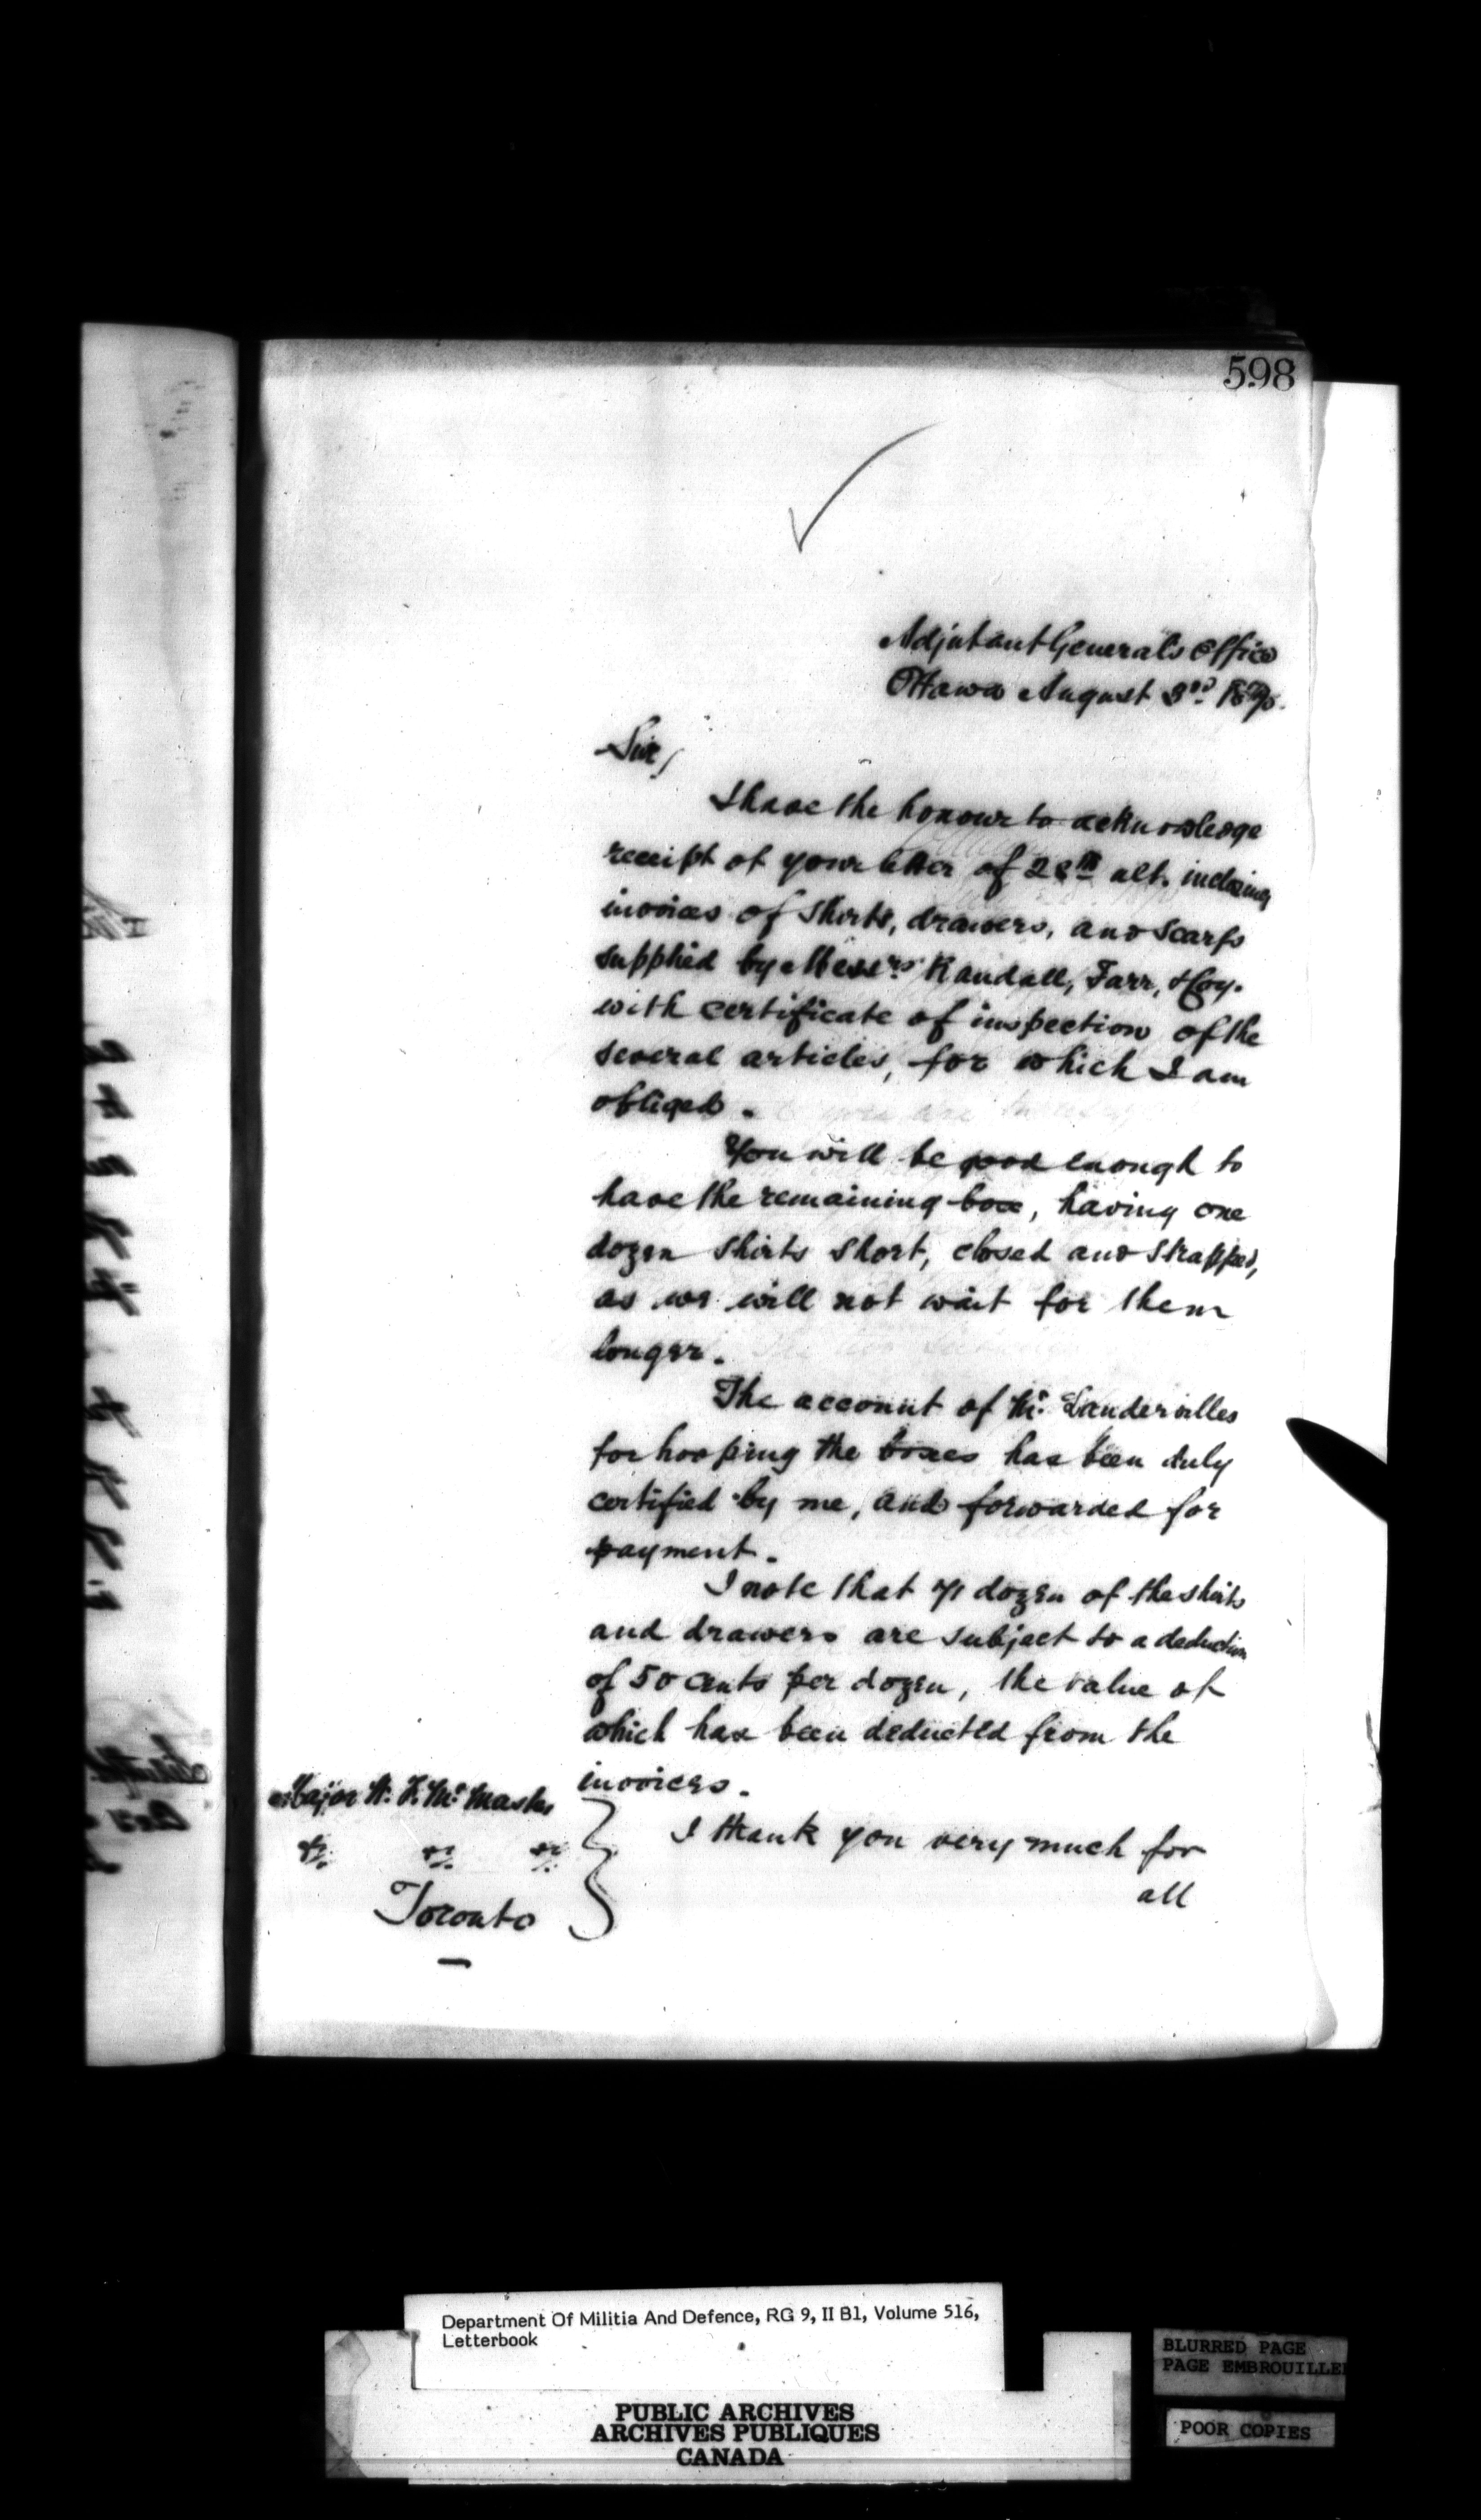 598
Adjutant General's Office
Ottawa August 3rd 1875.
Sir,
I have the honour to acknowledge
receipt of your letter of 28th ult. inclosing
invoices of shirts, drawers, and scarfs
supplied by Messrs Randall, Farr, & Coy.
with certificate of inspection of the
several articles, for which I am
obliged.
You will be good enough to
have the remaining box, having one
dozen shirts short, closed and strapped,
as we will not wait for them
longer.
The account of Mr. Landervilles
for hooping the boxes has been duly
certified by me, and forwarded for
payment.
I note that 71 dozen of the shirts
and drawers are subject to a deduction
of 50 cents per dozen, the value of
which has been deducted from the
invoices.
I thank you very much for
all
Major W. F. McMaster
&c &c &c
Toronto
Department Of Militia And Defence, RG 9, II B1, Volume 516,
Letterbook
PUBLIC ARCHIVES
ARCHIVES PUBLIQUES
CANADA
BLURRED PAGE
PAGE EMBROUILLE
POOR COPIES